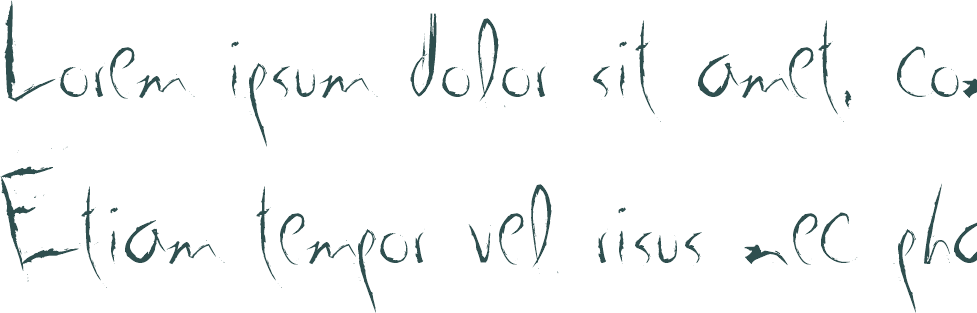 Lorem ipsum dolor sit amet, con
Etiam tempor vel risus nec pha